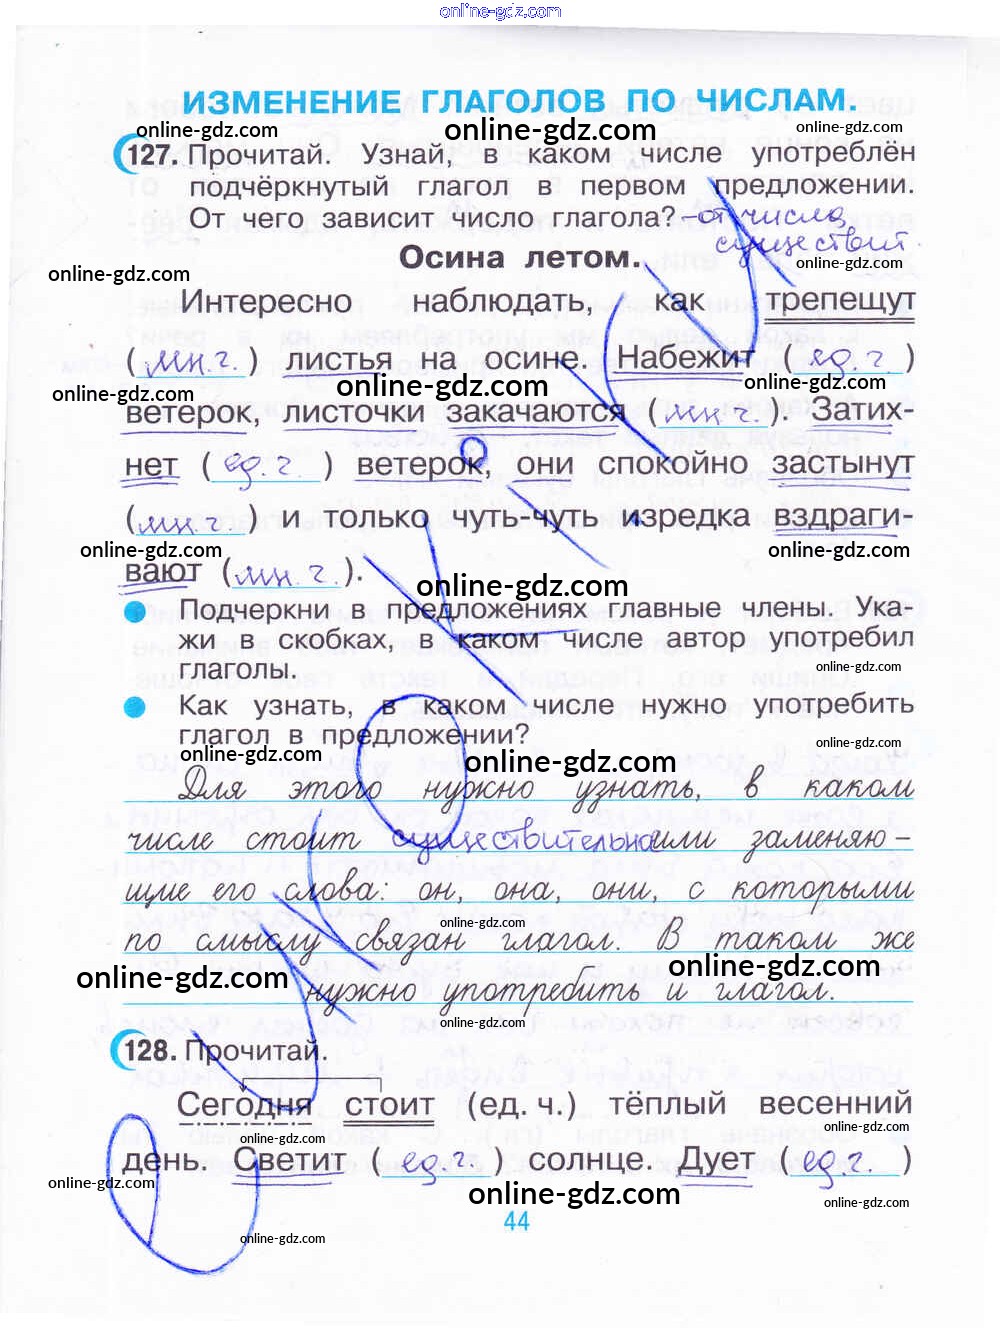 online-gdz.com
ИЗМЕНЕНИЕ ГЛАГОЛОВ ПО ЧИСЛАМ.
online-gdz.com online-gdz.com online-gdz.com
127. Прочитай. Узнай, в каком числе употреблён
подчёркнутый глагол в первом предложении.
От чего зависит число глагола? – от числа
online-gdz.com существит.
Осина летом.
online-gdz.com online-gdz.com
Интересно наблюдать, как трепещут
(мн.ч.) листья на осине. Набежит (ед.ч)
online-gdz.com online-gdz.com online-gdz.com
ветерок, листочки закачаются (мн.ч.). Затих-
нет (ед.ч.) ветерок, они спокойно застынут
(мн.ч) и только чуть-чуть изредка вздраги-
online-gdz.com online-gdz.com
вают (мн.ч.).
online-gdz.com
Подчеркни в предложениях главные члены. Ука-
жи в скобках, в каком числе автор употребил
глаголы.
online-gdz.com
Как узнать, в каком числе нужно употребить
глагол в предложении?
online-gdz.com online-gdz.com online-gdz.com
Для этого нужно узнать, в каком
числе стоит существительное или заменяю-
щие его слова: он, она, они, с которыми
online-gdz.com
по смыслу связан глагол. В таком же
online-gdz.com online-gdz.com
нужно употребить и глагол.
online-gdz.com
128. Прочитай.
Сегодня стоит (ед. ч.) тёплый весенний
online-gdz.com online-gdz.com
день. Светит (ед.ч.) солнце. Дует (ед.ч)
online-gdz.com online-gdz.com online-gdz.com
44
online-gdz.com